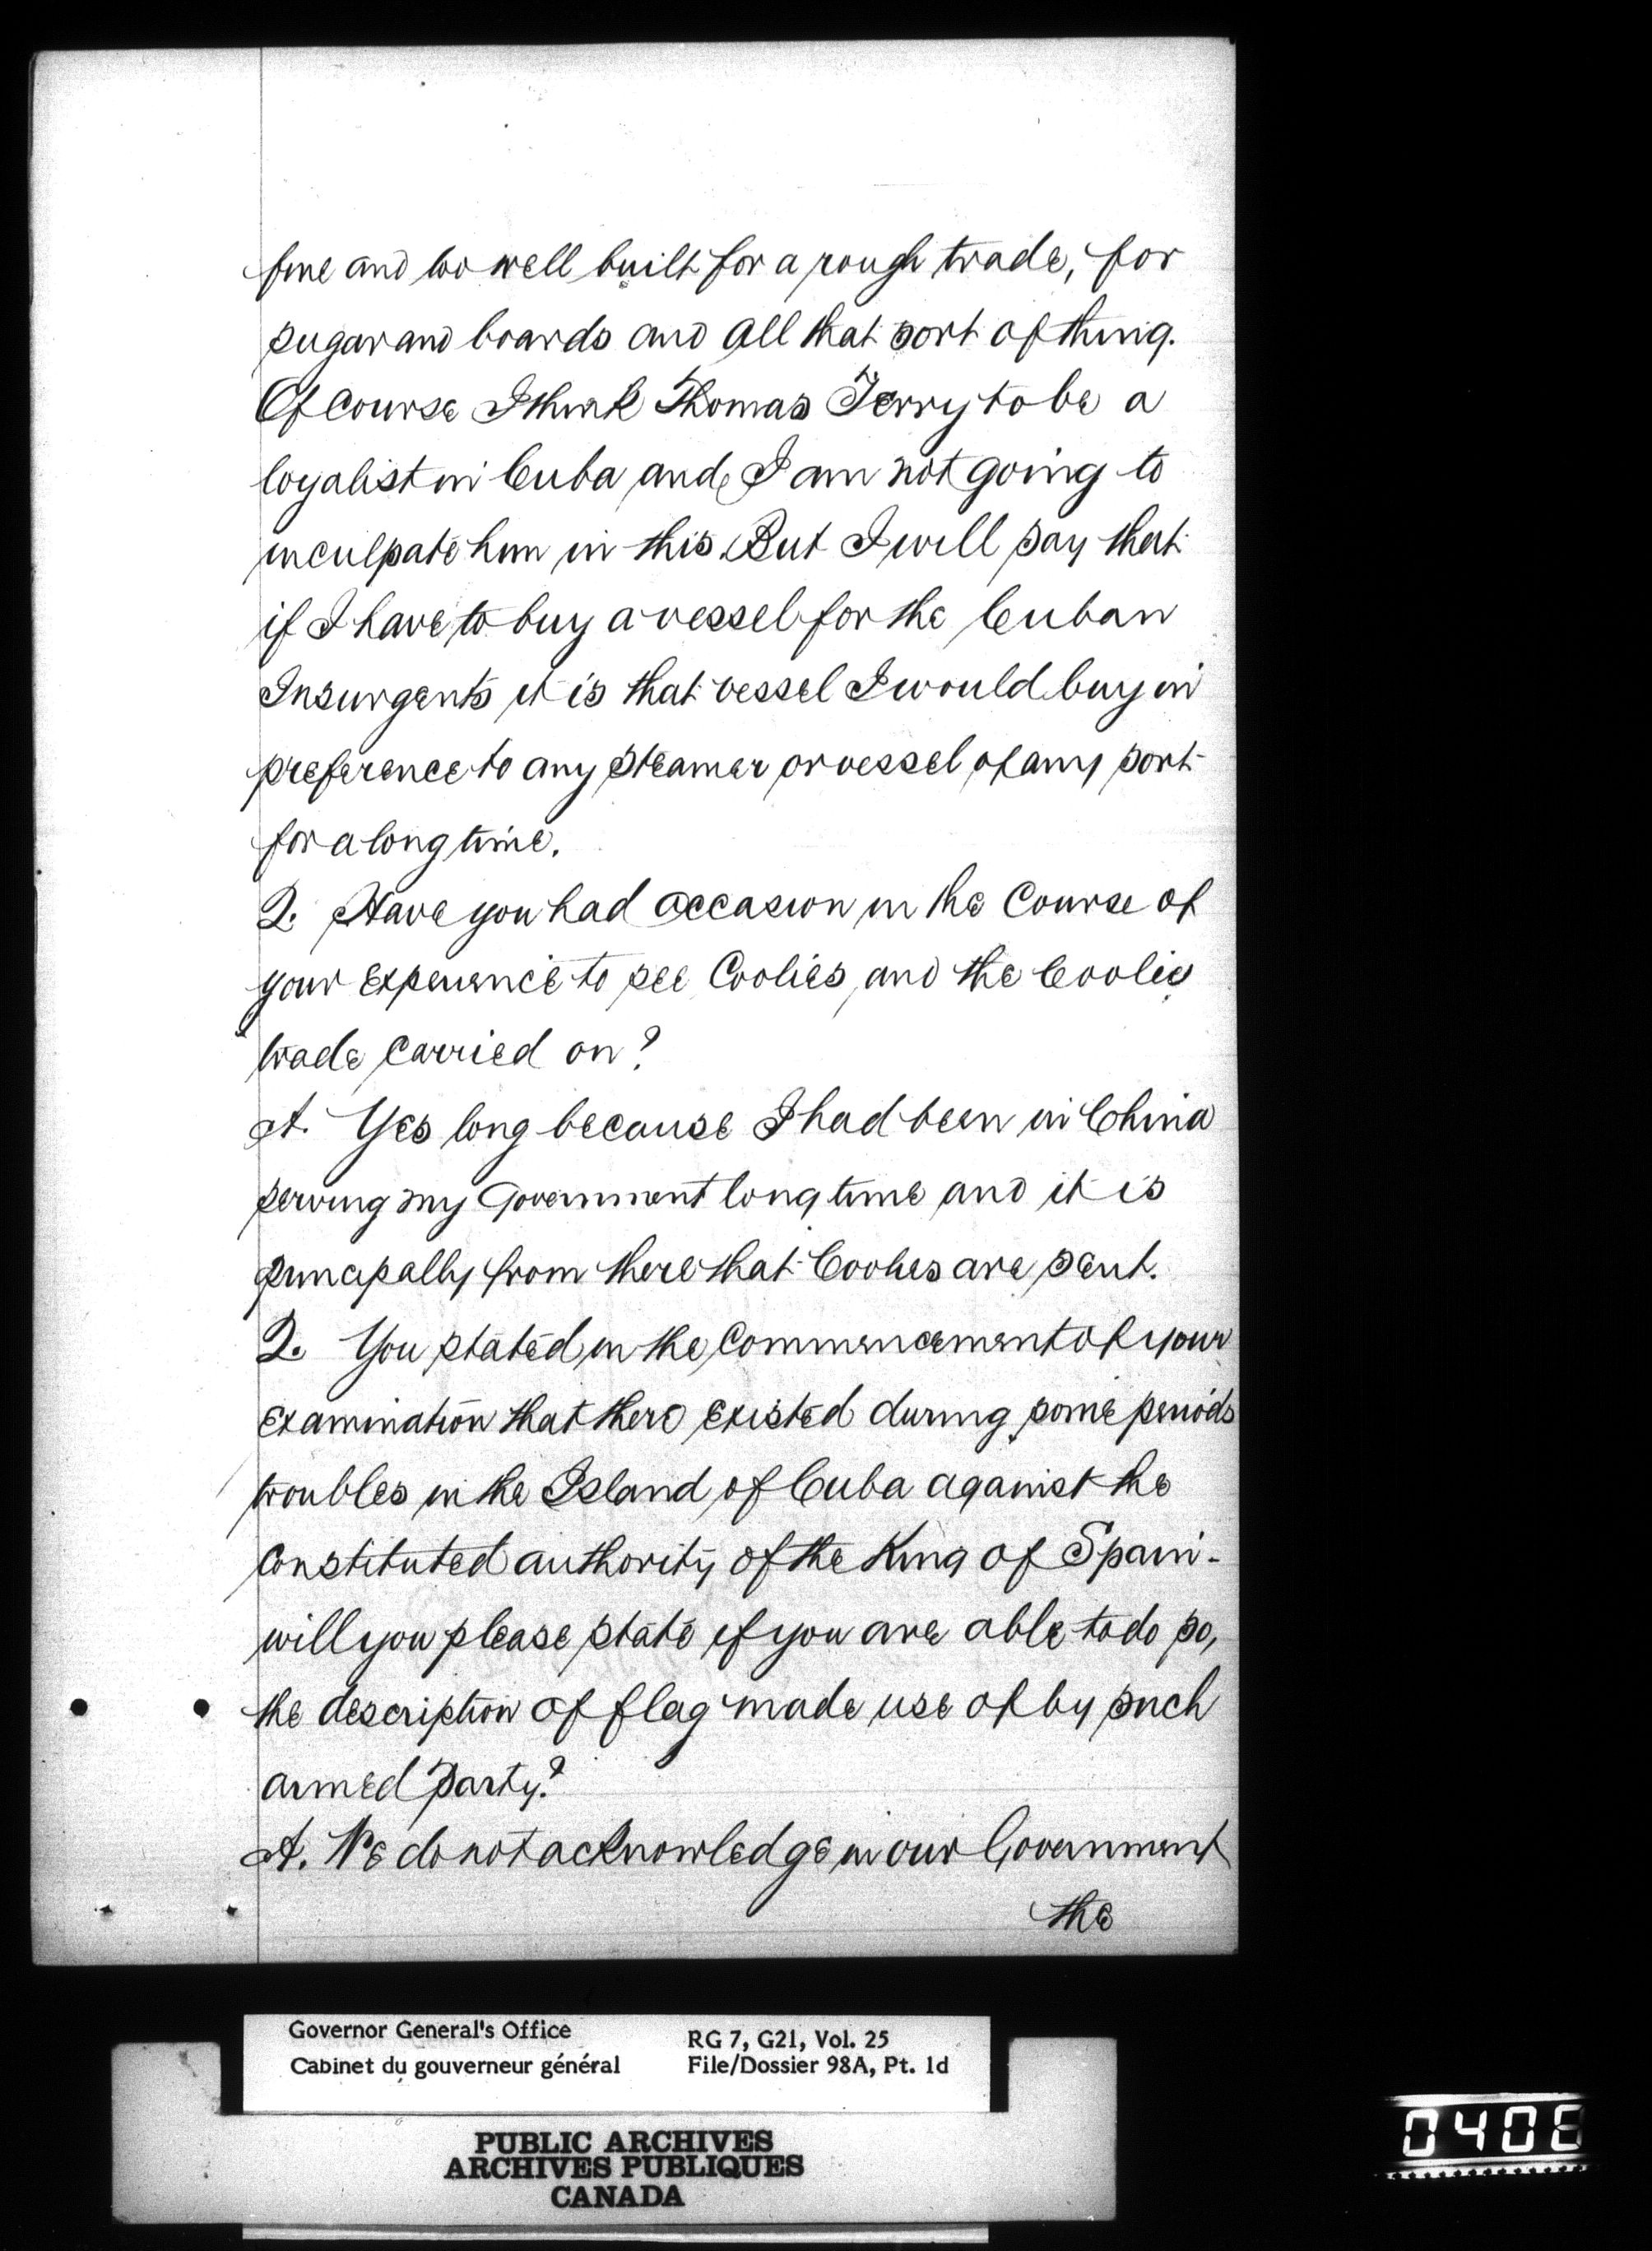 fine and too well built for a rough trade, for
sugar and boards and all that sort of thing.
Of course I think Thomas Terry to be a
loyalist in Cuba and I am not going to
inculpate him in this. But I will say that
if I have to buy a vessel for the Cuban
Insurgents it is that vessel I would buy in
preference to any steamer or vessel of any sort
for a long time.
Q. Have you had occasion in the course of
your experience to see Coolies, and the Coolie
trade carried on?
A. Yes long because I had been in China
serving my Government long time and it is
principally from there that Coolies are sent.
Q. You stated in the commencement of your
examination that there existed during some periods
troubles in the Island of Cuba against the
constituted authority of the King of Spain -
will you please state if you are able to do so,
the description of flag made use of by such
armed party?
A. We do not acknowledge in our Government
the
Governor General's Office
Cabinet du gouverneur général
RG 7, G21, Vol. 25
File/Dossier 98A, Pt. 1d
PUBLIC ARCHIVES
ARCHIVES PUBLIQUES
CANADA